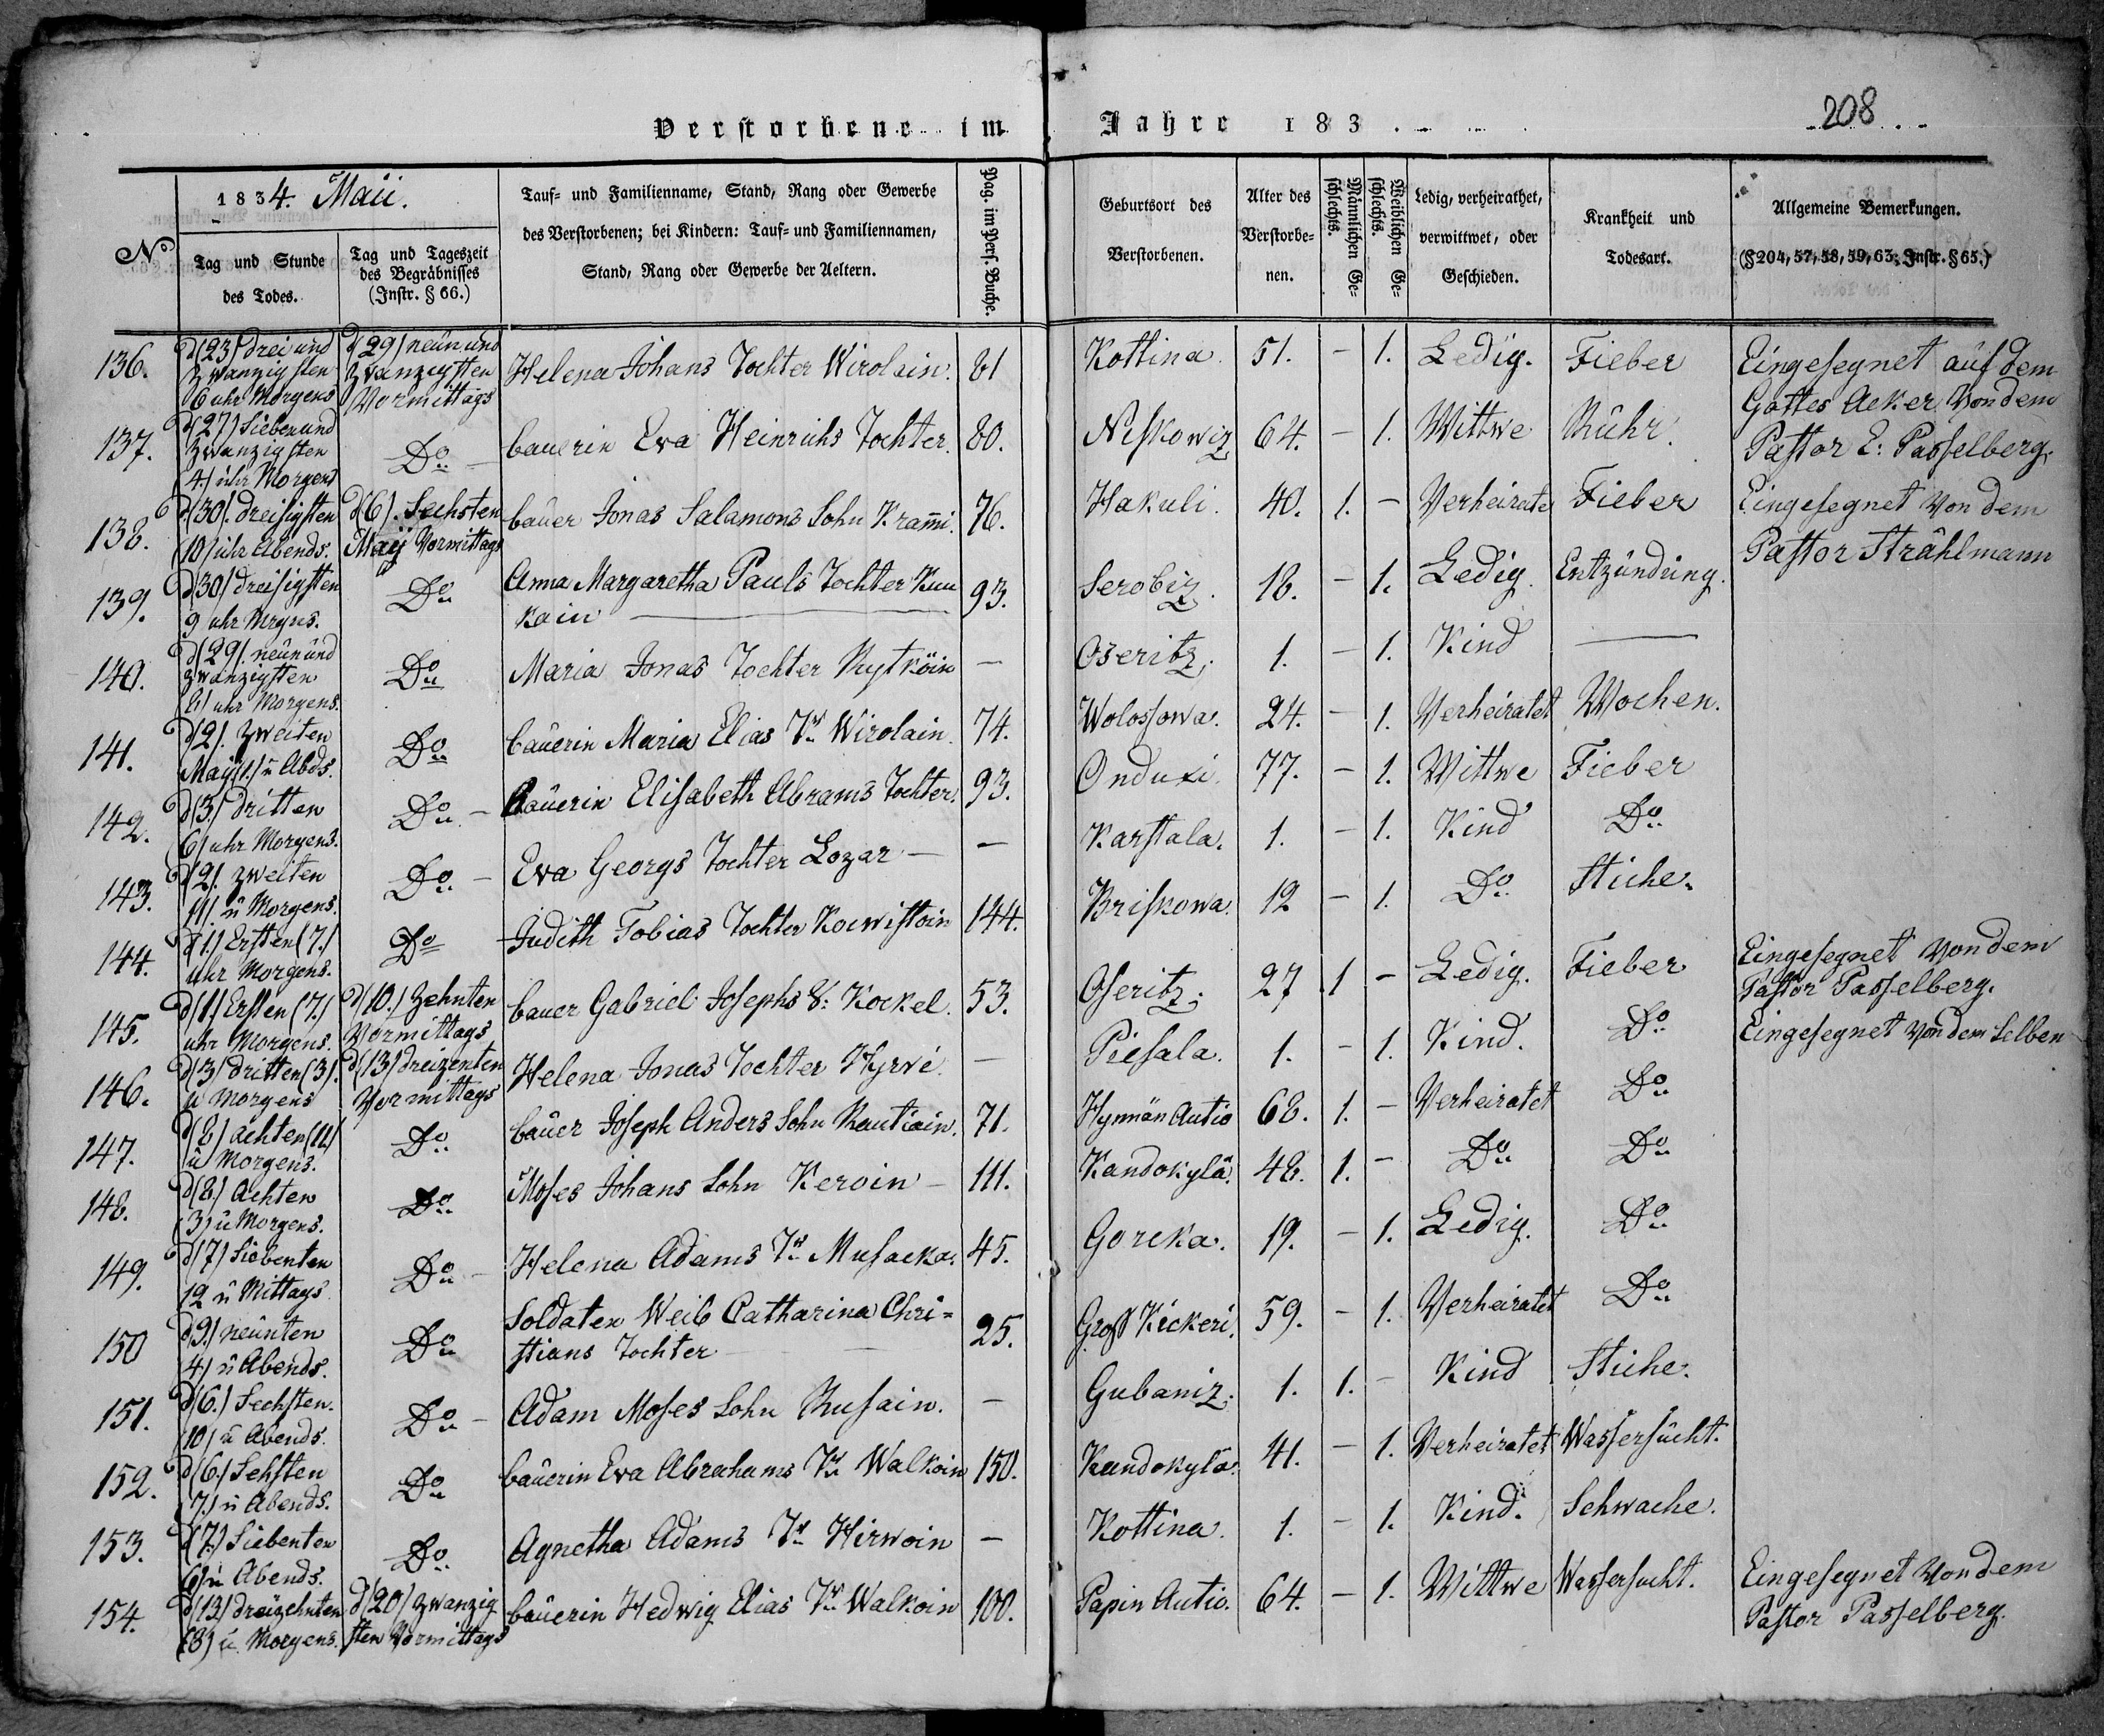 Verstorbene im Jahre 183
208
1834. Maii.
N°
Tag und Stunde
des Todes.
Tag und Tageszeit
des Begräbnisses
(Instr. § 66.)
Tauf- und Familienname, Stand, Rang oder Gewerbe
des Verstorbenen; bei Kindern: Tauf- und Familiennamen,
Stand, Rang oder Gewerbe der Aeltern.
Pag. im Pers. Buche.
Geburtsort des
Verstorbenen.
Alter des
Verstorbe-
nen.
Männlichen Ge-
schlechts.
Weiblichen Ge-
schlechts.
Ledig, verheirathet,
verwittwet, oder
Geschieden.
Krankheit und
Todesart.
Allgemeine Bemerkungen.
(§ 204, 57, 58, 59, 63; Instr. § 65.)
136. d(23) drei und zwanzigsten 6 uhr Morgens d(29) neun und zwanzigsten Vormittags Helena Johans Tochter Wirolain. 81 Kottina. 51. – 1. Ledig. Fieber Eingesegnet auf dem Gottes Acker Von dem Pastor E: Passelberg.
137. d(27) Sieben und zwanzigsten (4.) uhr Morgens Do bauerin Eva Heinrichs Tochter. 80. Niskowiz 64. – 1. Wittwe Ruhr.
138. d(30). dreisigsten (10) uhr Abends. d(6). Sechsten Maÿ Vormittags bauer Jonas Salamons Sohn Krami. 76. Hakuli. 40. 1. – Verheirate Fieber Eingesegnet Von dem Pastor Strahlmann
139. d(30) dreisigsten 9 uhr Mrgns. Do Anna Margaretha Pauls Tochter Kukain 93. Serobiz. 18. – 1. Ledig. Entzündung.
140. d(29). neun und zwanzigsten uhr Morgens. Do Maria Jonas Tochter Rytköin – Oseritz. 1. – 1. Kind –
141. d(2). Zweiten May (1.) u Abds. Do bauerin Maria Elias Tr Wirolain. 74. Wolossowa. 24. – 1. Verheiratet Wochen.
142. d(3.) dritten 6) uhr Morgens. Do – bauerin Elisabeth Abrams Tochter. 93. Onduxi. 77. – 1. Wittwe Fieber
143. d(2). zweiten u Morgens. Do – Eva Georgs Tochter Lozar – – Karstala. 1. – 1. Kind Do
144. d(1.) Ersten (7.) uhr Morgens. Do Judith Tobias Tochter Koewistoin 144. Briskowa. 12 – 1. Do Stiche.
145. d(1.) Ersten (7.) uhr Morgens. d(10.) Zehnten Vormittags bauer Gabriel Josephs S: Kockel. 53. Oseritz. 27 1 – Ledig. Fieber Eingesegnet Von dem Pastor Passelberg.
146. d(3) dritten (3). u Morgens d(13) dreizenten Vormittags Helena Jonas Tochter Hyrvi. – Piesala. 1. – 1. Kind. Do Eingesegnet Von dem Selben
147. d(8) achten u Morgens. Do bauer Joseph Anders Sohn Rautiain. 71. Hynnän Autio 68. 1. – Verheiratet Do
148. d(8.) Achten (3) u Morgens. Do Moses Johans Sohn Keroin – 111. Kandokylä. 48. 1. – Do Do
149. d(7) Siebenten 12 u Mittags. Do – Helena Adams Tr Musacka. 45. Goreka. 19. – 1. Ledig. Do
150 d(9.) neunten (4) u Abends. Do Soldaten Weib Catharina Chri=stians Tochter 25. Gross Kickeri. 59. – 1. Verheiratet Do
151. d(6.) Sechsten. (10) u Abends. Do – Adam Moses Sohn Rusain. – Gubaniz. 1. 1. – Kind Stiche.
152. d(6.) Sehsten (7.) u Abends. Do bauerin Eva Abrahams Tr Walkoin 150. Kandokylä. 41. – 1. Verheiratet Wassersucht.
153. d(7.) Siebenten (6) u Abends. Do Agnetha Adams Tr Hirwoin – Kottina. 1. – 1. Kind. Schwache.
154. d(13) dreizehnten (8) u Morgens. d(20) zwanzigsten Vormittags bauerin Hedwig Elias Tr Walkoin 100. Papin Autio. 64. – 1. Wittwe Wassersucht. Eingesegnet Von dem Pastor Passelberg.